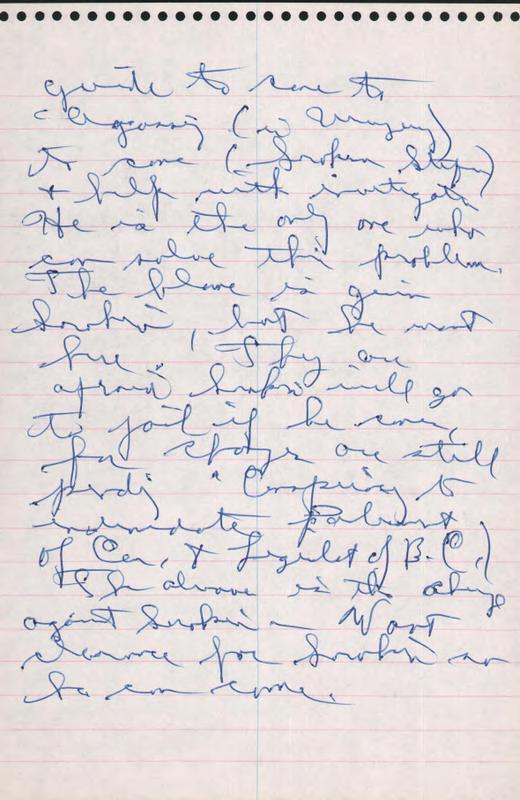 quite to come to
Agassiz (in Uruguay)
to come (Sorokin Stefan)
+ help with investigati
He is the only one who
can solve this problem.
The blame is given
Sorokin, but he must
here". They are
afraid Sorokin will go
to jail if he comes,
for charges are still
pending "Conspiracy to
intimidate Parliament
of Can, & Legislat of B.C.)
The above is the charge
against Sorokin - Want
clearance for Sorokin so
he can come.